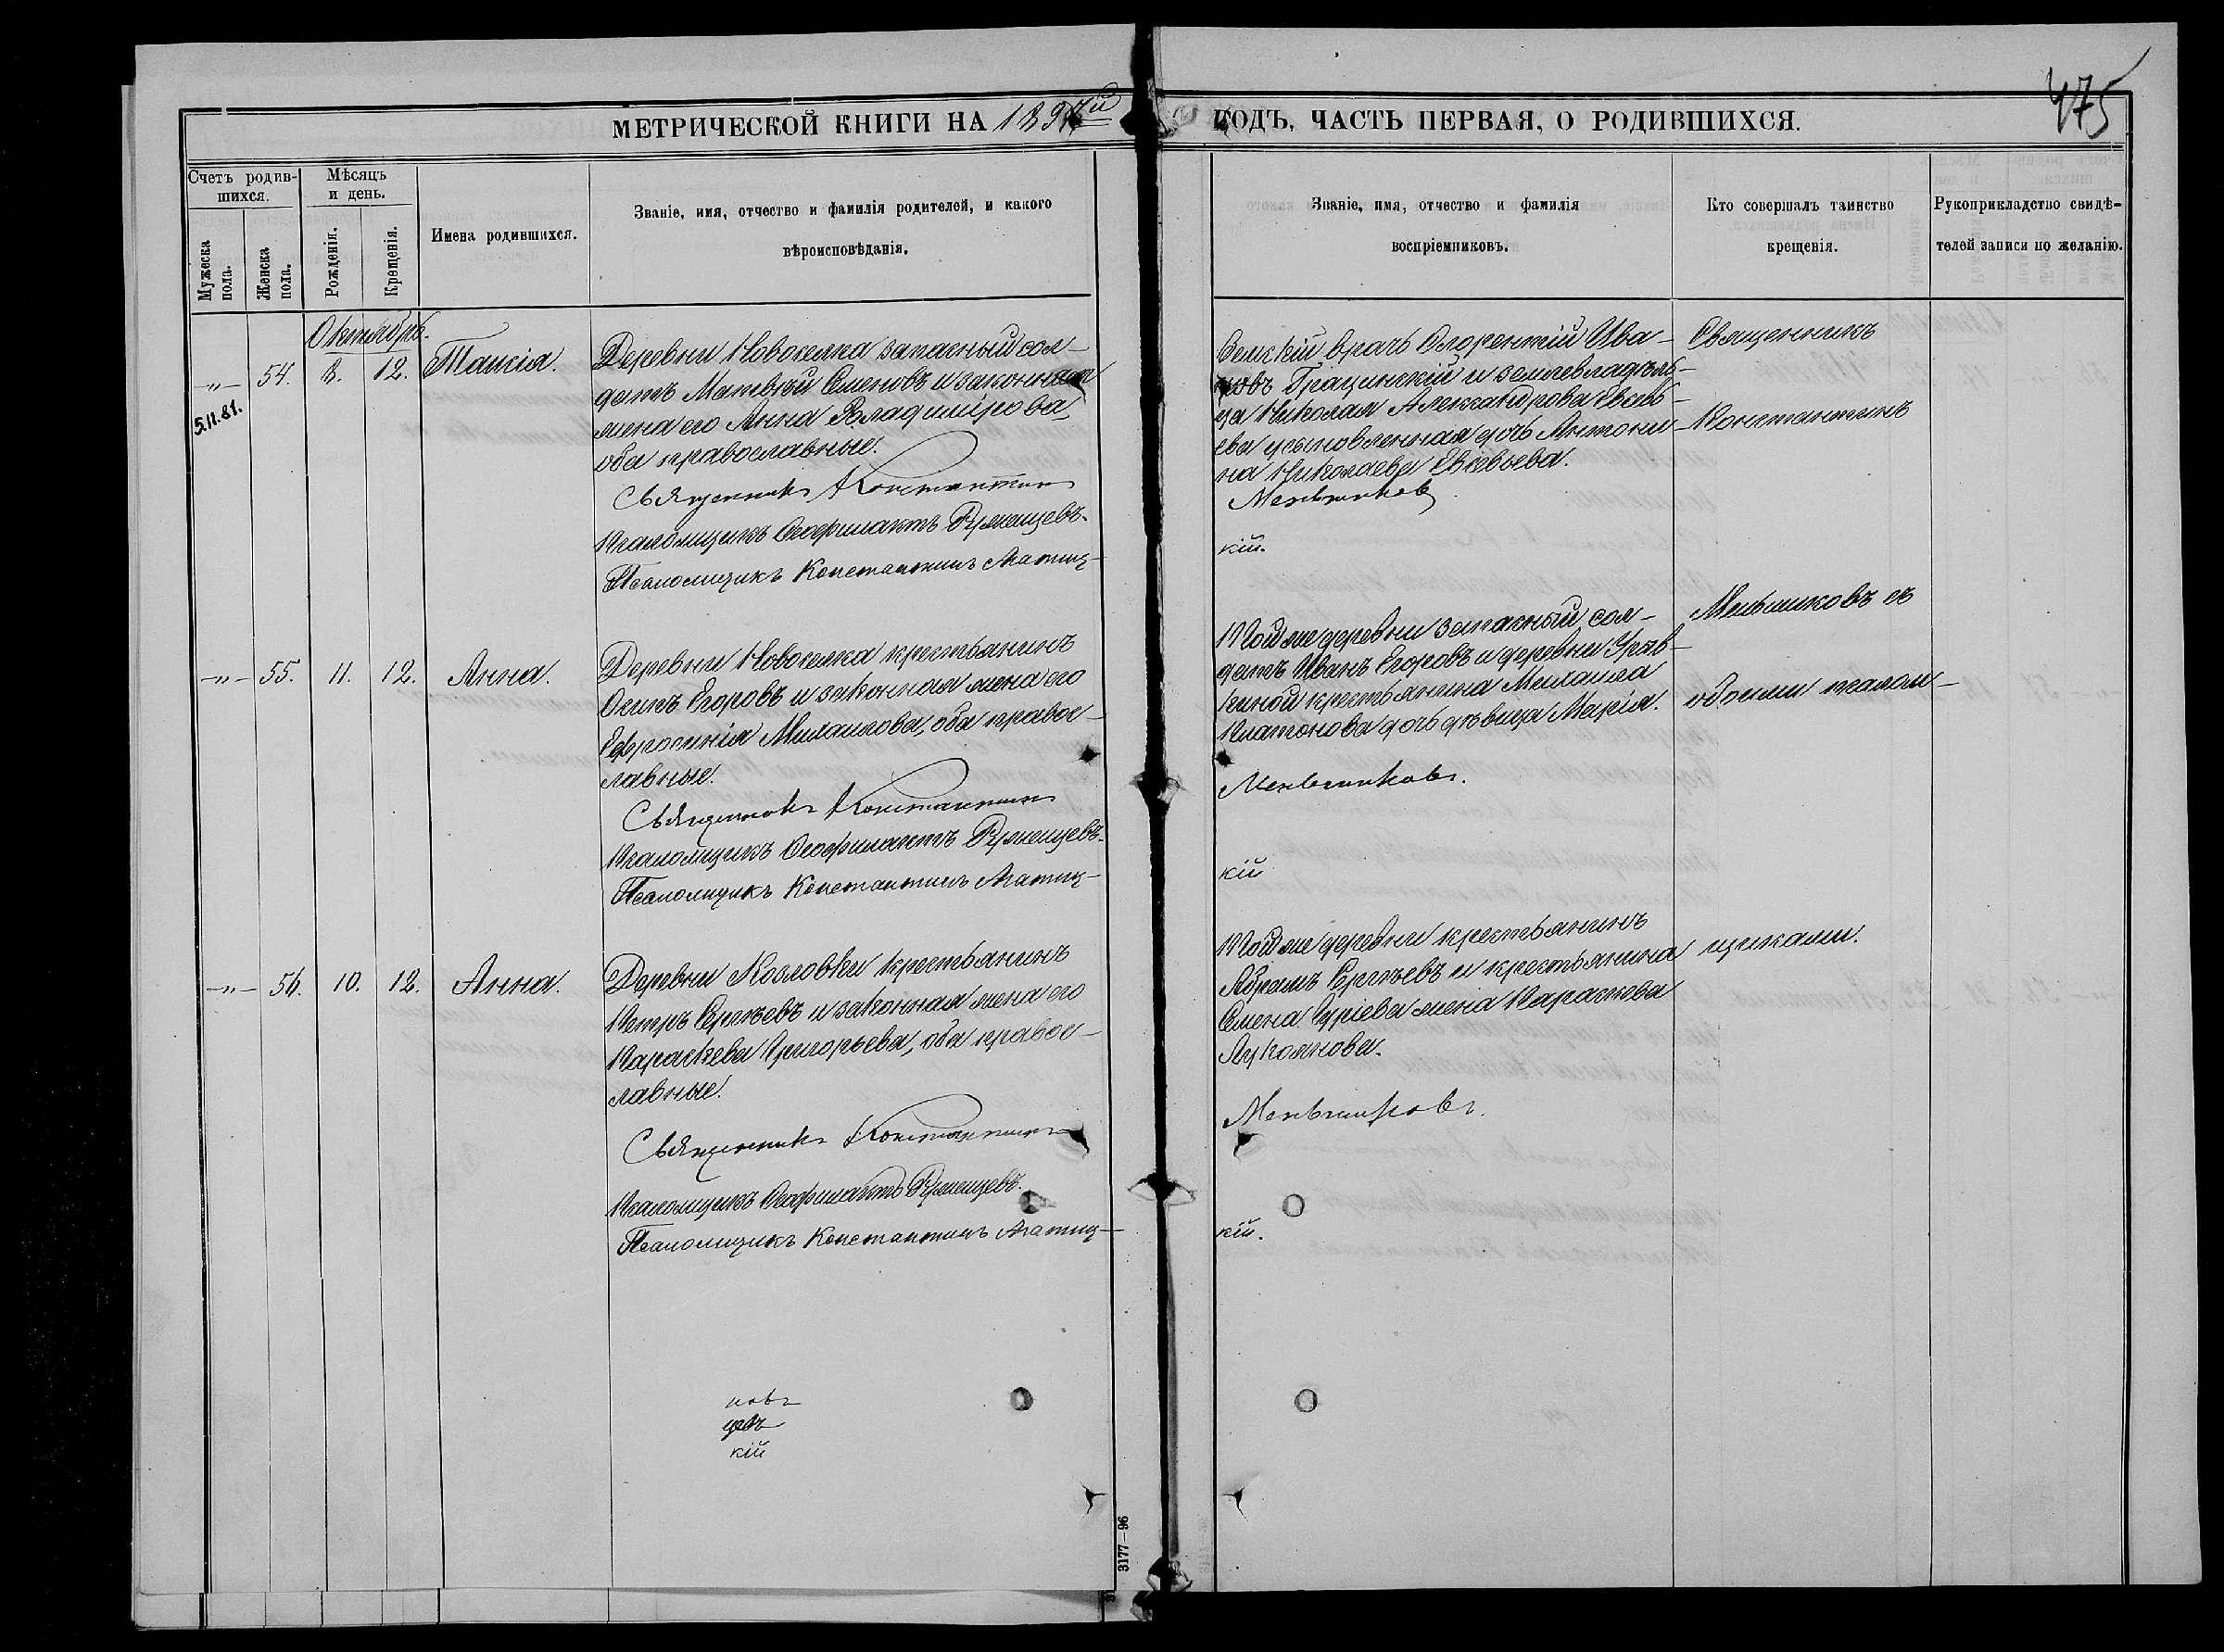 475
МЕТРИЧЕСКОЙ КНИГИ НА 1897й ГОДЪ, ЧАСТЬ ПЕРВАЯ, О РОДИВШИХСЯ.
Счетъ родив-
шихся.
Мужеска пола.
Женска пола.
Мѣсяцъ
и день.
Рожденія.
Крещенія.
Имена родившихся.
Званіе, имя, отчество и фамилія родителей, и какого
вѣроисповѣданія.
Званіе, имя, отчество и фамилія
воспріемниковъ.
Кто совершалъ таинство
крещенія.
Рукоприкладство свидѣ-
телей записи по желанію.
Октябрь.
-"- 54. 8. 12. Таисія.
5.11.81.
Деревни Новоселка запасный сол-
датъ Матвѣй Семеновъ и законная
жена его Анна Владимірова,
оба православные.
Земскій врачъ Флорентій Ива-
новъ Грацинскій и землевладѣль-
ца Николая Александрова Евсѣв-
ева усыновленная дочь Антони-
на Николаева Евсевьева.
Священникъ Константинъ Меньшиковъ
Псаломщикъ Ѳеофилактъ Румянцевъ.
Псаломщикъ Константинъ Агатиц-
кій.
Священникъ
Константинъ
Меньшиковъ съ
обоими псалом-
щиками.
-"- 55. 11. 12. Анна.
Деревни Новоселка крестьянинъ
Осипъ Егоровъ и законная жена его
Ефросинія Михаилова, оба правос-
лавные.
Той же деревни запасный сол-
датъ Иванъ Егоровъ и деревни
крестьянина Михаила
Платонова дочь дѣвица Марія.
Священникъ Константинъ Меньшиковъ.
Псаломщикъ Ѳеофилактъ Румянцевъ.
Псаломщикъ Константинъ Агатиц-
кій
-"- 56. 10. 12. Анна.
Деревни Козловки крестьянинъ
Петръ Сергѣевъ и законная жена его
Параскева Григорьева, оба правос-
лавные.
Той же деревни крестьянинъ
Абрамъ Сергѣевъ и крестьянина
Семена Гуріева жена Параскева
Лукоянова.
Священникъ Константинъ Меньшиковъ.
Псаломщикъ Ѳеофилактъ Румянцевъ.
Псаломщикъ Константинъ Агатиц-
кій.
новъ
цевъ
кій
3177-96